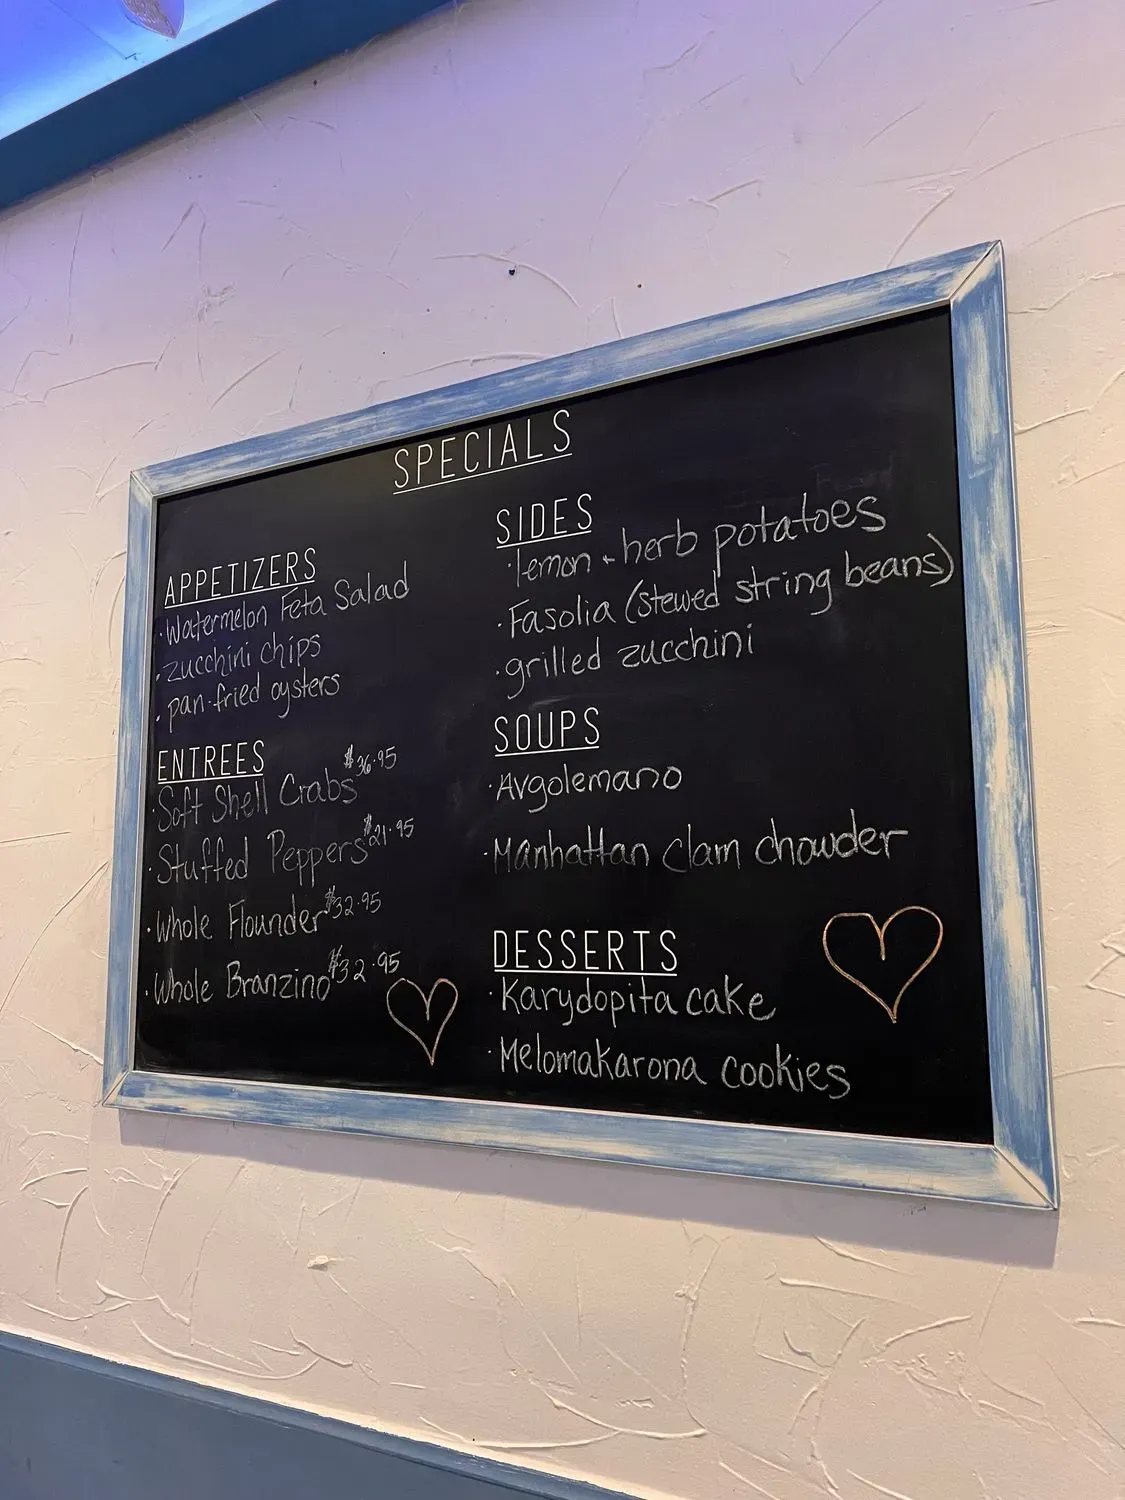 SPECIALS
APPETIZERS
· Watermelon Feta Salad
· zucchini chips
· pan-fried oysters
ENTREES
· Soft Shell Crabs $36.95
· Stuffed Peppers $21.95
· Whole Flounder $32.95
· Whole Branzino $32.95
SIDES
· lemon - herb potatoes
· Fasolia (stewed string beans)
· grilled zucchini
SOUPS
· Avgolemano
· Manhattan clam chowder
DESSERTS
· Karydopita cake
· Melomakarona cookies